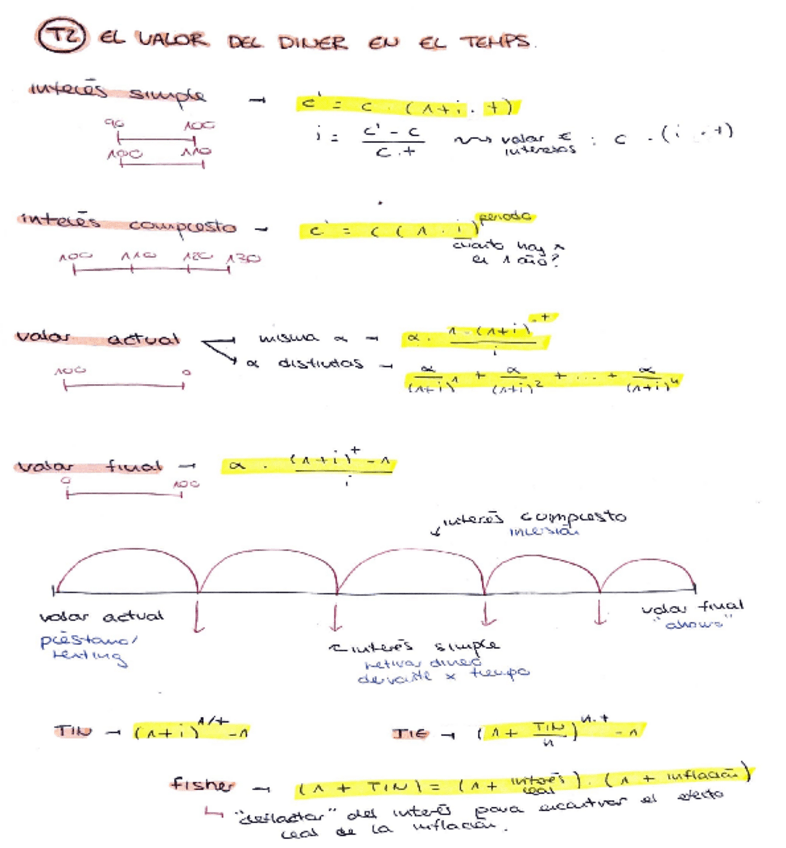 T2 EL VALOR DEL DINER EN EL TEMPS.
interés simple → c' = c · (1+i · t)
90 100
100 110
i = c' - c / c · t ⟿ valor € intereses : c · (i · t)
interés compuesto → c' = c (1 · i)^periodo
cuánto hay x en 1 año?
100 110 120 130
valor actual → misma α → α · 1 · (1+i)^·t / i
→ α distintas → α/(1+i)^1 + α/(1+i)^2 + ... + α/(1+i)^n
100 0
valor final → α · (1+i)^t - 1 / i
0 100
interés compuesto
inversión
valor actual
préstamo/
renting
interés simple
retirar dinero
durante x tiempo
valor final
"ahorro"
TIN → (1+i)^1/t - 1
TIE → (1 + TIN/n)^n·t - 1
fisher → (1 + TIN) = (1 + interés real) · (1 + inflación)
↳ "deflactar" del interés para encontrar el efecto
real de la inflación.